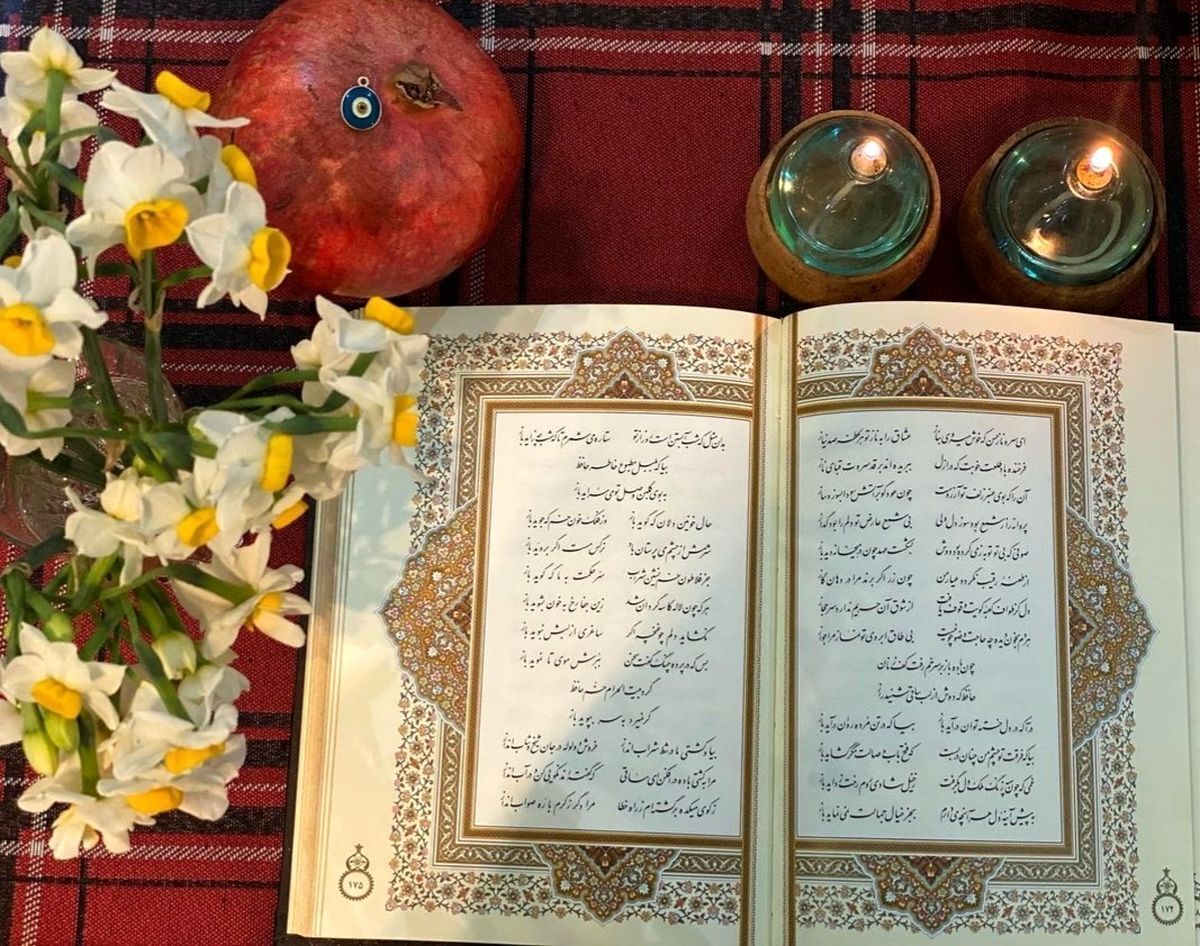 ای سرو ناز حسن که خوش می‌روی بناز عشاق را به ناز تو هر لحظه صد نیاز
فرخنده باد خلعت خوبت که در ازل ببریده‌اند بر قد سروت قبای ناز
آن را که بوی عنبر زلف تو آرزوست چون عود گو بر آتش سودا بسوز و ساز
پروانه را ز شمع بود سوز دل ولی بی شمع عارض تو دلم را بود گداز
صوفی که بی تو توبه ز می کرده بود دوش بشکست عهد چون در میخانه دید باز
از طعنهٔ رقیب نگردد عیار من چون زر اگر برند مرا در دهان گاز
دل کز طواف کعبهٔ کویت وقوف یافت از شوق آن حریم ندارد سر حجاز
هر دم بخون دیده چه حاجت وضو چو نیست بی طاق ابروی تو نماز مرا جواز
چون باده باز بر سر خم رفت کف زنان
حافظ که دوش از لب ساقی شنید راز
درآ که در دل خسته توان درآید باز بیا که در تن مرده روان درآید باز
بیا که فرقت تو چشم من چنان در بست که فتح باب وصالت مگر گشاید باز
غمی که چون سپه زنگ ملک دل بگرفت ز خیل شادی روم رخت زداید باز
به پیش آینهٔ دل هر آنچه می‌دارم بجز خیال جمالت نمی‌نماید باز
۱۷۴
بدان مثل که شب آبستن است روز از تو ستاره می‌شمرم تا که شب چه زاید باز
بیا که بلبل مطبوع خاطر حافظ
به بوی گلبن وصل تو می‌سراید باز
حال خونین دلان که گوید باز وز فلک خون خم که جوید باز
شرمش از چشم می پرستان باد نرگس مست اگر بروید باز
جز فلاطون خم نشین شراب سر حکمت به ما که گوید باز
هر که چون لاله کاسه گردان شد زین جفا رخ به خون بشوید باز
نگشاید دلم چو غنچه اگر ساغری از لبش نبوید باز
بس که در پرده چنگ گفت سخن ببرش موی تا نموید باز
گرد بیت الحرام خم حافظ
گر نمیرد به سر بپوید باز
بیا و کشتی ما در شط شراب انداز خروش و ولوله در جان شیخ و شاب انداز
مرا به کشتی باده درافکن ای ساقی که گفته‌اند نکویی کن و در آب انداز
ز کوی میکده برگشته‌ام ز راه خطا مرا دگر ز کرم با ره صواب انداز
۱۷۵